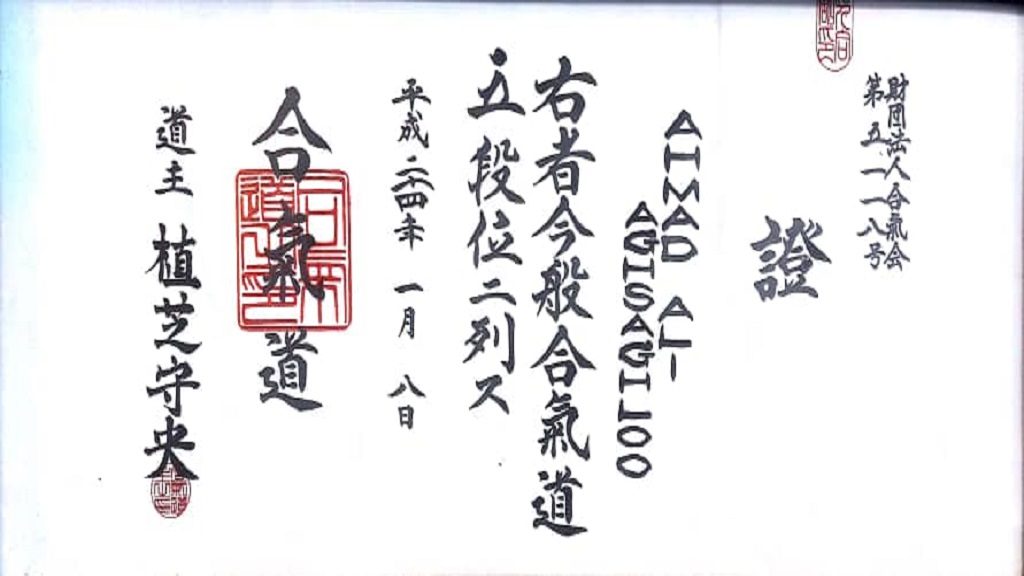 財団法人合氣会
第五一一八号
證
AHMAD ALI
AGHSAGHLOO
右者今般合氣道
五段位ニ列ス
平成二十四年 一月 八日
合氣道
道主 植芝守央